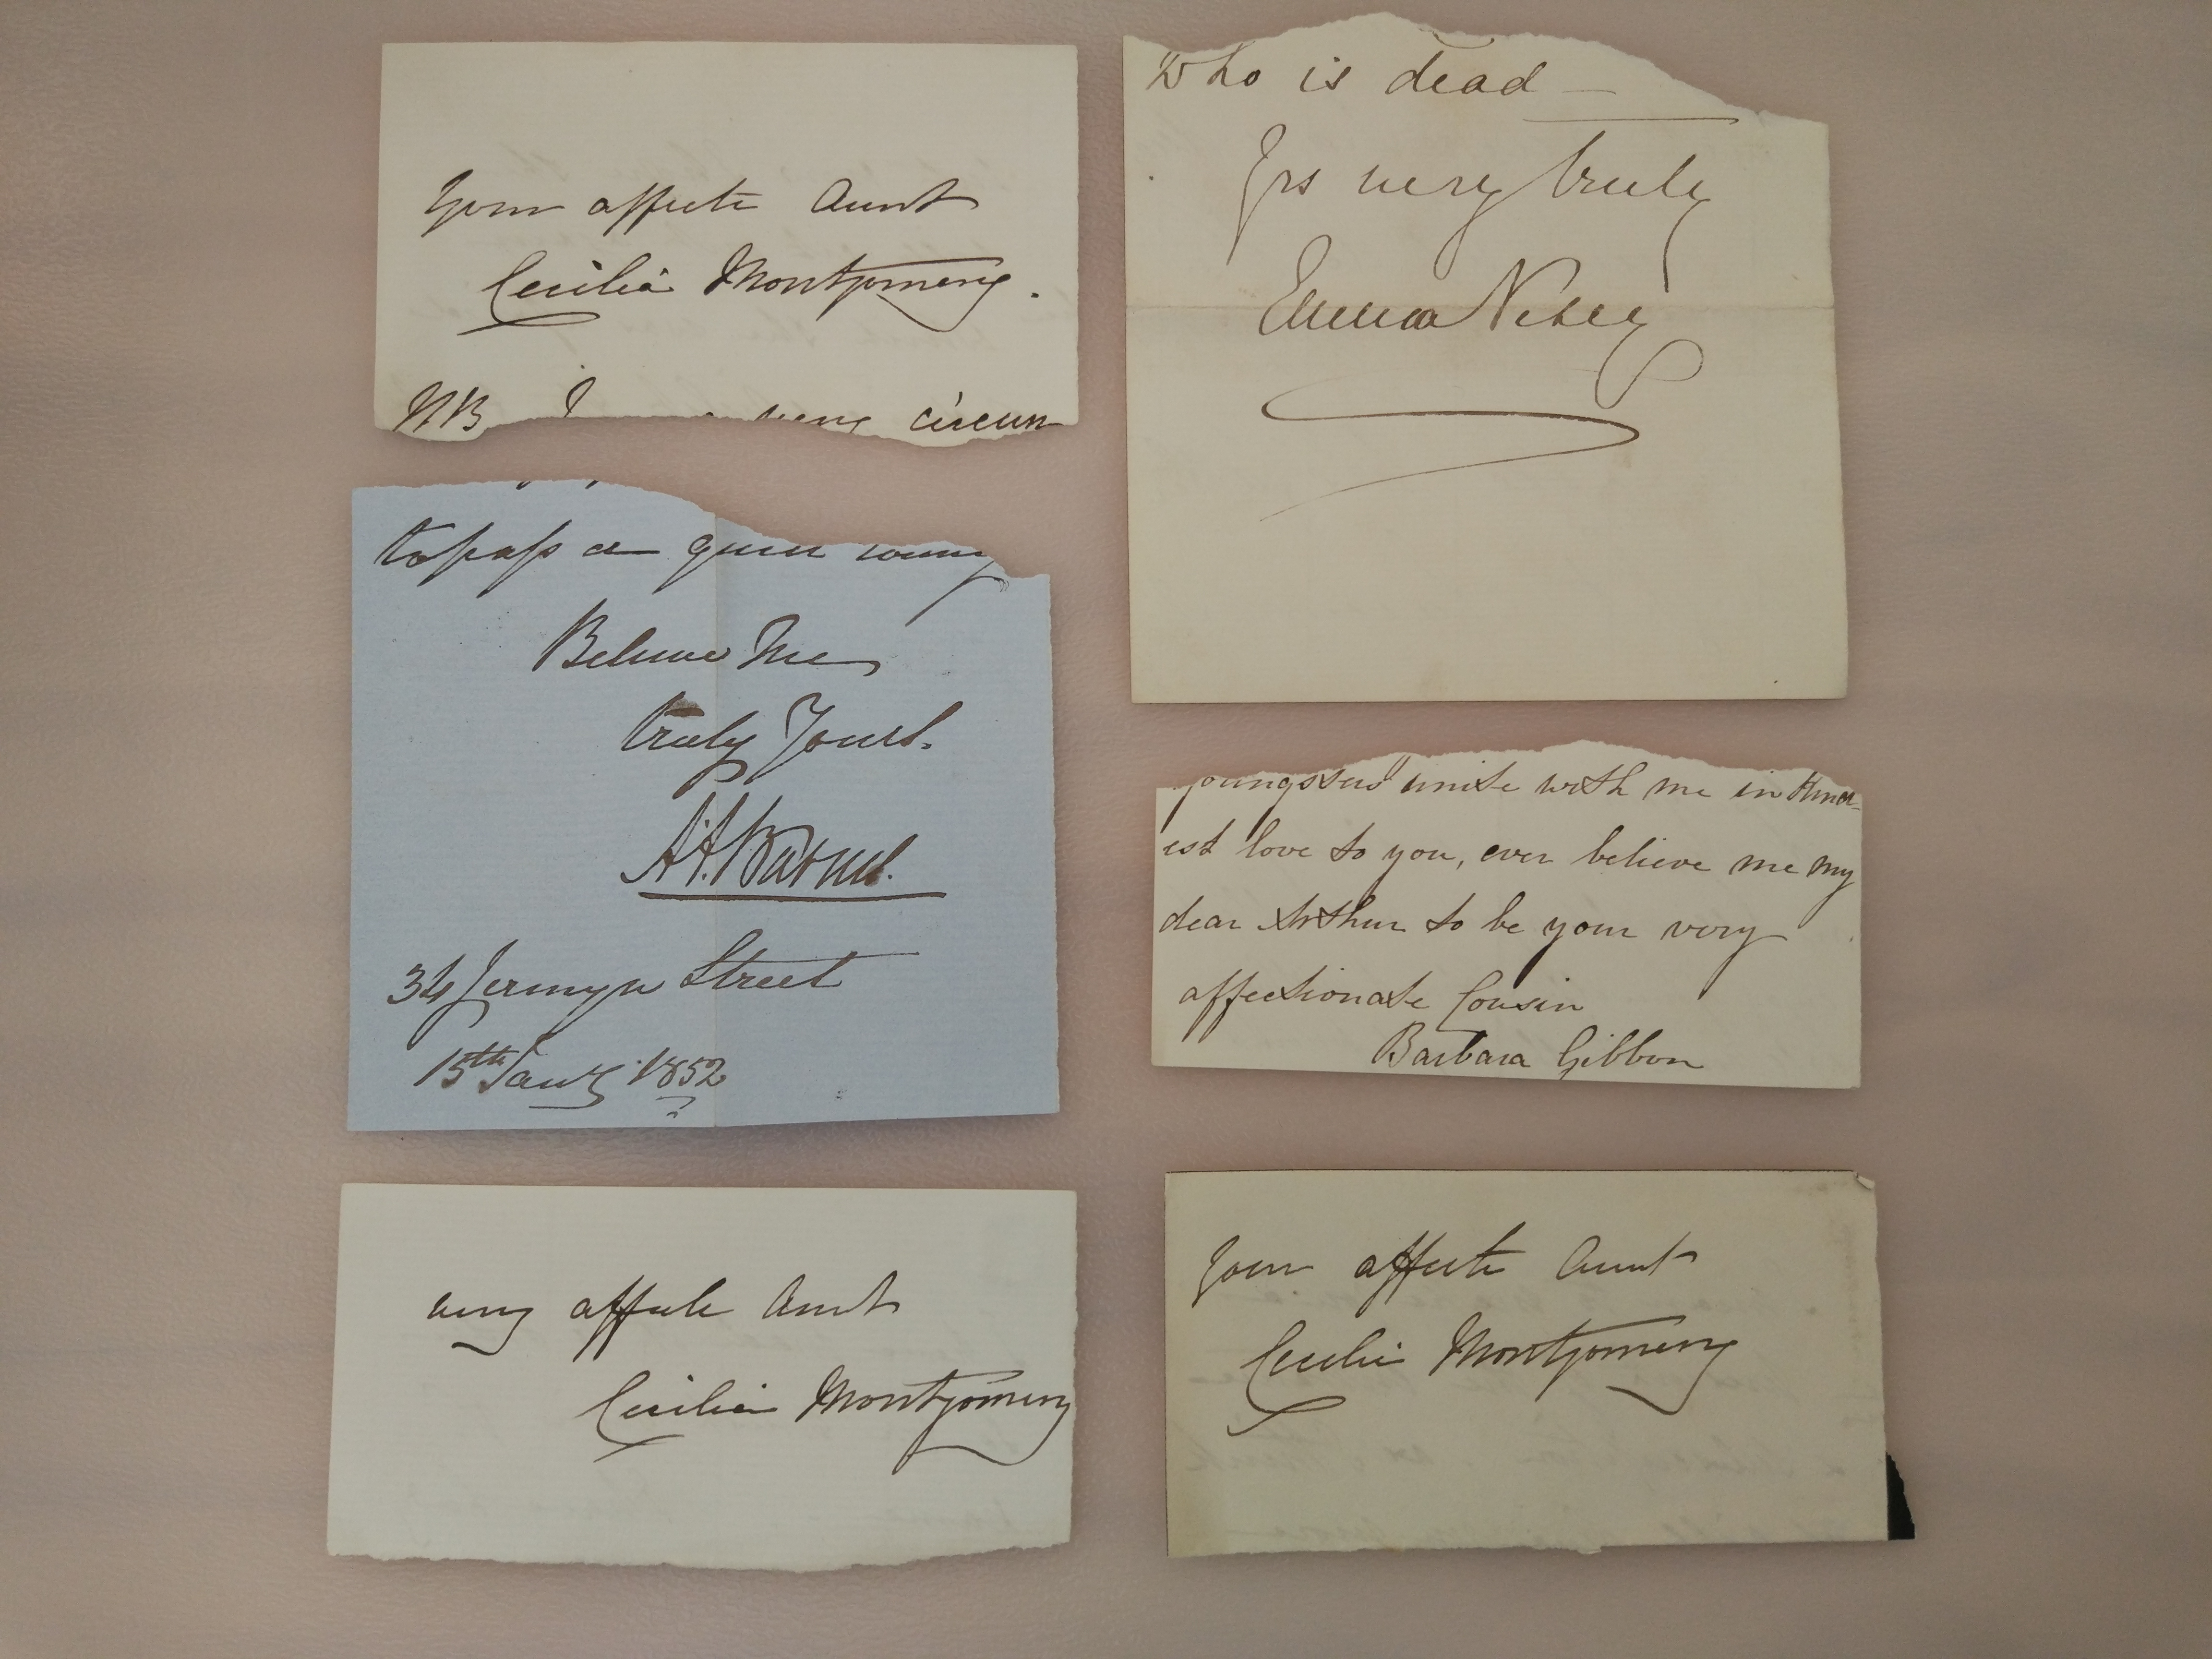 Your affecte Aunt
Cecilia Montgomery.
NB I very circum
to pass a quiet
Believe Me
truly Yours.
34 Jermyn Street
15th Jany 1852
very affecte Aunt
Cecilia Montgomery
Who is dead —
Yrs very truly
Emma
youngsters unite with me in kind-
est love to you, ever believe me my
dear Arthur to be your very
affectionate Cousin
Barbara Gibbon
Your affecte Aunt
Cecilia Montgomery